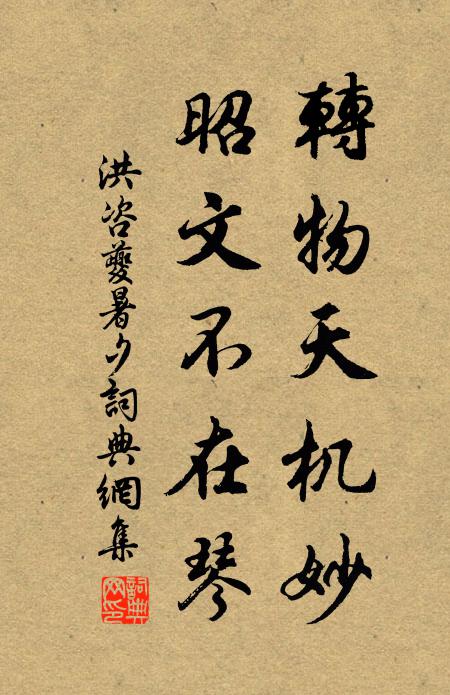 轉物天机妙
昭文不在琴
洪咨夔暑夕詞典網集
詞典網印